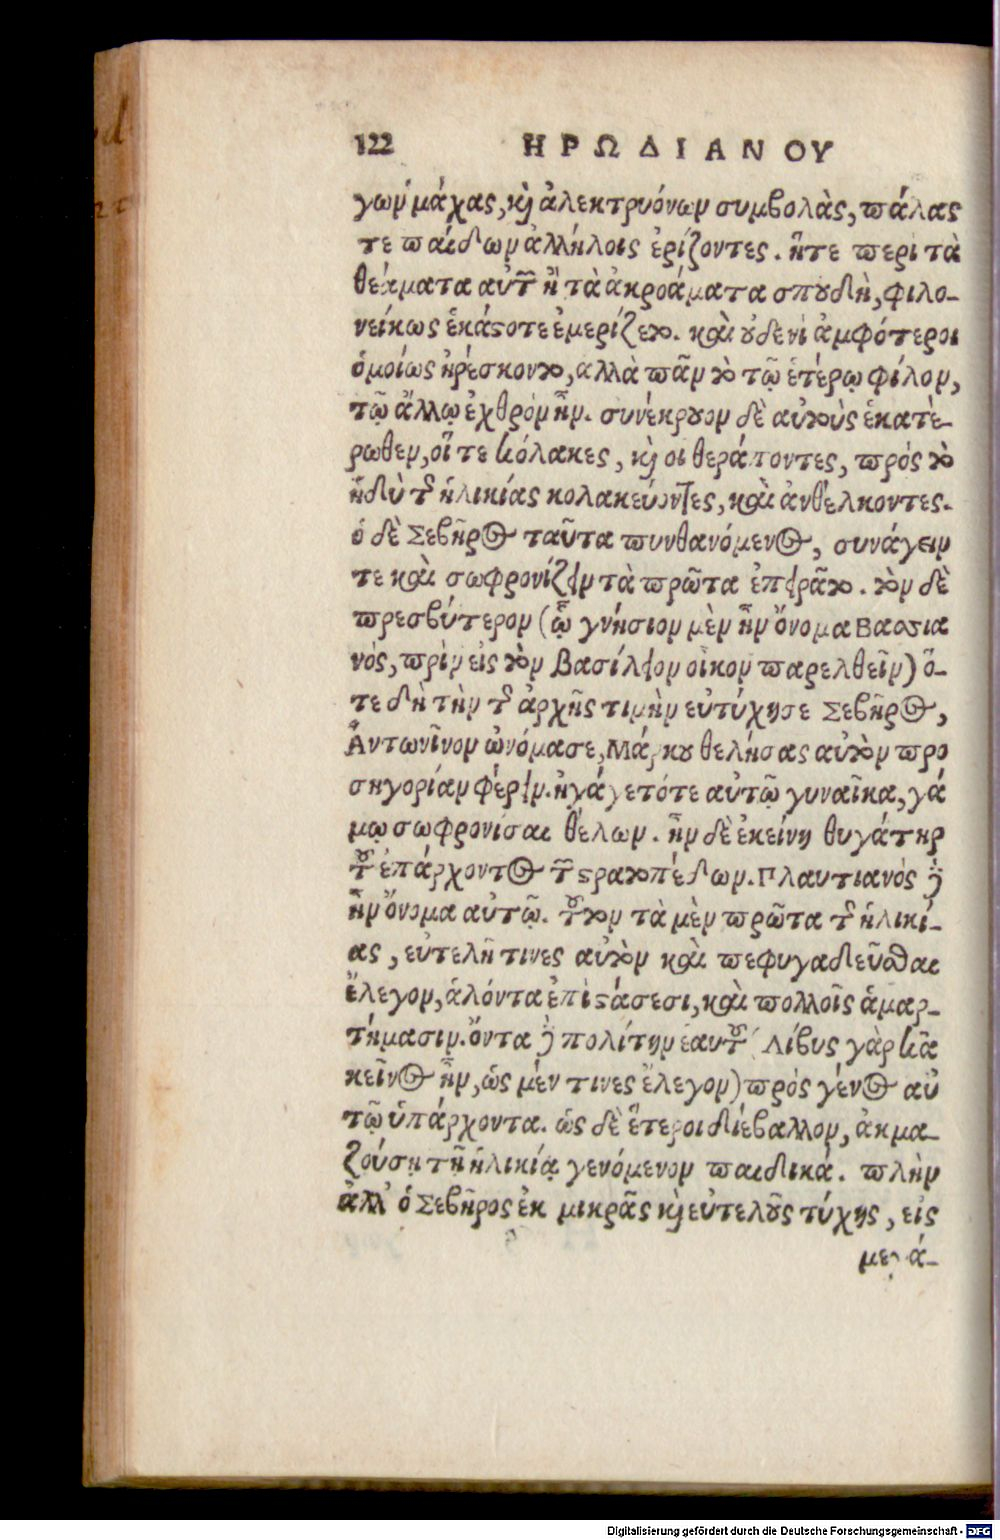 122 ΗΡΩΔΙΑΝΟΥ
γων μάχας, κὶ ἀλεκτρυόνων συμβολὰς, πάλας
τε παίδων ἀλλήλοις ἐρίζοντες. ἥτε περὶ τὰ
θεάματα αὐτῶν ἢ τὰ ἀκροάματα σπουδὴ, φιλο-
νείκως ἑκάστοτε ἐμερίζετο. καὶ οὐδενὶ ἀμφότεροι
ὁμοίως ἠρέσκοντο, αλλὰ πᾶν τὸ τῷ ἑτέρῳ φίλον,
τῷ ἄλλῳ ἐχθρὸν ἦν. συνέκρουον δὲ αὐτοὺς ἑκατέ-
ρωθεν, οἵ τε κόλακες, κὶ οι θεράποντες, πρὸς τὸ
ἡδὺ τῆς ἡλικίας κολακεύοντες, καὶ ἀνθέλκοντες.
ὁ δὲ Σεβῆρος ταῦτα πυνθανόμενος, συνάγειν
τε καὶ σωφρονίζειν τὰ πρῶτα ἐπειρᾶτο. τὸν δὲ
πρεσβύτερον (ᾧ γνήσιον μὲν ἦν ὄνομα Βασσια
νός, πρὶν εἰς τὸν βασίλειον οἶκον παρελθεῖν) ὅ-
τε δὴ τὴν τῆς ἀρχῆς τιμὴν εὐτύχησε Σεβῆρος,
Ἀντωνῖνον ὠνόμασε, Μάρκου θελήσας αὐτὸν προ
σηγορίαν φέρειν. ἠγάγετό τε αὐτῷ γυναῖκα, γά
μῳ σωφρονίσαι θέλων. ἦν δὲ ἐκείνη θυγάτηρ
τοῦ ἐπάρχοντος τῶν στρατοπέδων. Πλαυτιανὸς δὲ
ἦν ὄνομα αὐτῷ. τοῦτον τὰ μὲν πρῶτα τῆς ἡλικί-
ας, εὐτελῆ τινες αὐτὸν καὶ πεφυγαδεῦσθαι
ἔλεγον, ἁλόντα ἐπὶ στάσεσι, καὶ πολλοῖς ἁμαρ-
τήμασιν. ὄντα δὲ πολίτην ἑαυτοῦ (Λίβυς γὰρ κἀ
κεῖνος ἦν, ὡς μέν τινες ἔλεγον) πρὸς γένος αὐ
τῷ ὑπάρχοντα. ὡς δὲ ἕτεροι διέβαλλον, ἀκμα-
ζούσῃ τῇ ἡλικίᾳ γενόμενον παιδικά. πλὴν
ἀλλ' ὁ Σεβῆρος ἐκ μικρᾶς κὶ εὐτελοῦς τύχης, εἰς
μεγά-
Digitalisierung gefördert durch die Deutsche Forschungsgemeinschaft - DFG